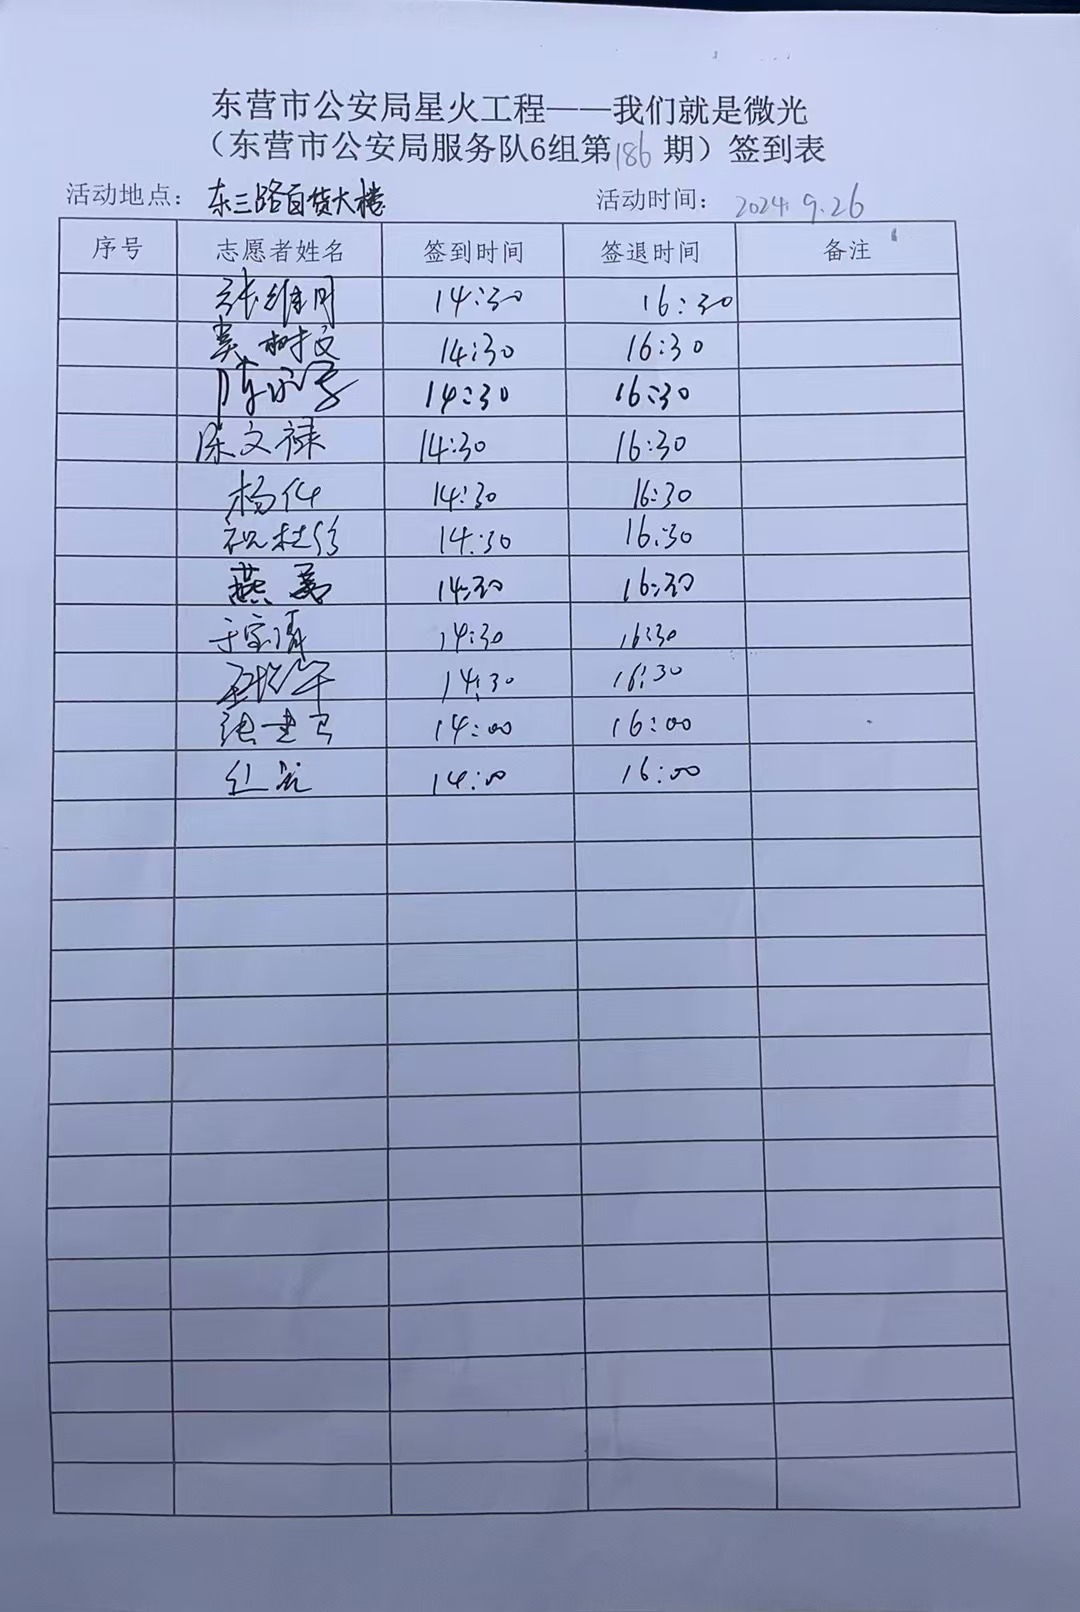 东营市公安局星火工程——我们就是微光
（东营市公安局服务队6组第186期）签到表
活动地点：东三路百货大楼 活动时间：2024.9.26
序号 志愿者姓名 签到时间 签退时间 备注
张维同 14:30 16:30
树文 14:30 16:30
14:30 16:30
陈文禄 14:30 16:30
杨伟 14:30 16:30
祝 14:30 16:30
燕勇 14:30 16:30
于宝清 14:30 16:30
14:30 16:30
张 14:00 16:00
14:00 16:00